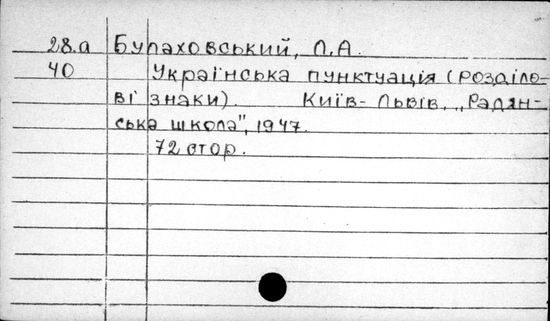 28.а Булаховський, Л.А.
40 Українська пунктуація (розділо-
ві знаки). Київ-Львів, „Радян-
ська школа", 1947.
72 стор.